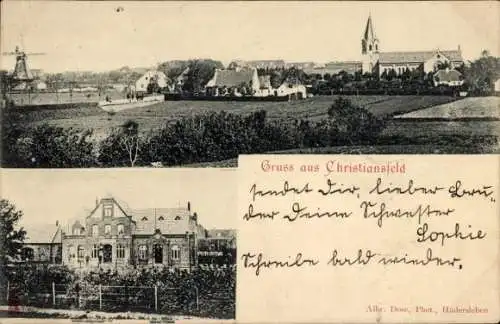 Gruss aus Christiansfeld
sendet Dir, lieber Bru-
der Deine Schwester
Sophie
Schreibe bald wieder.
Albr. Dose, Phot., Hadersleben